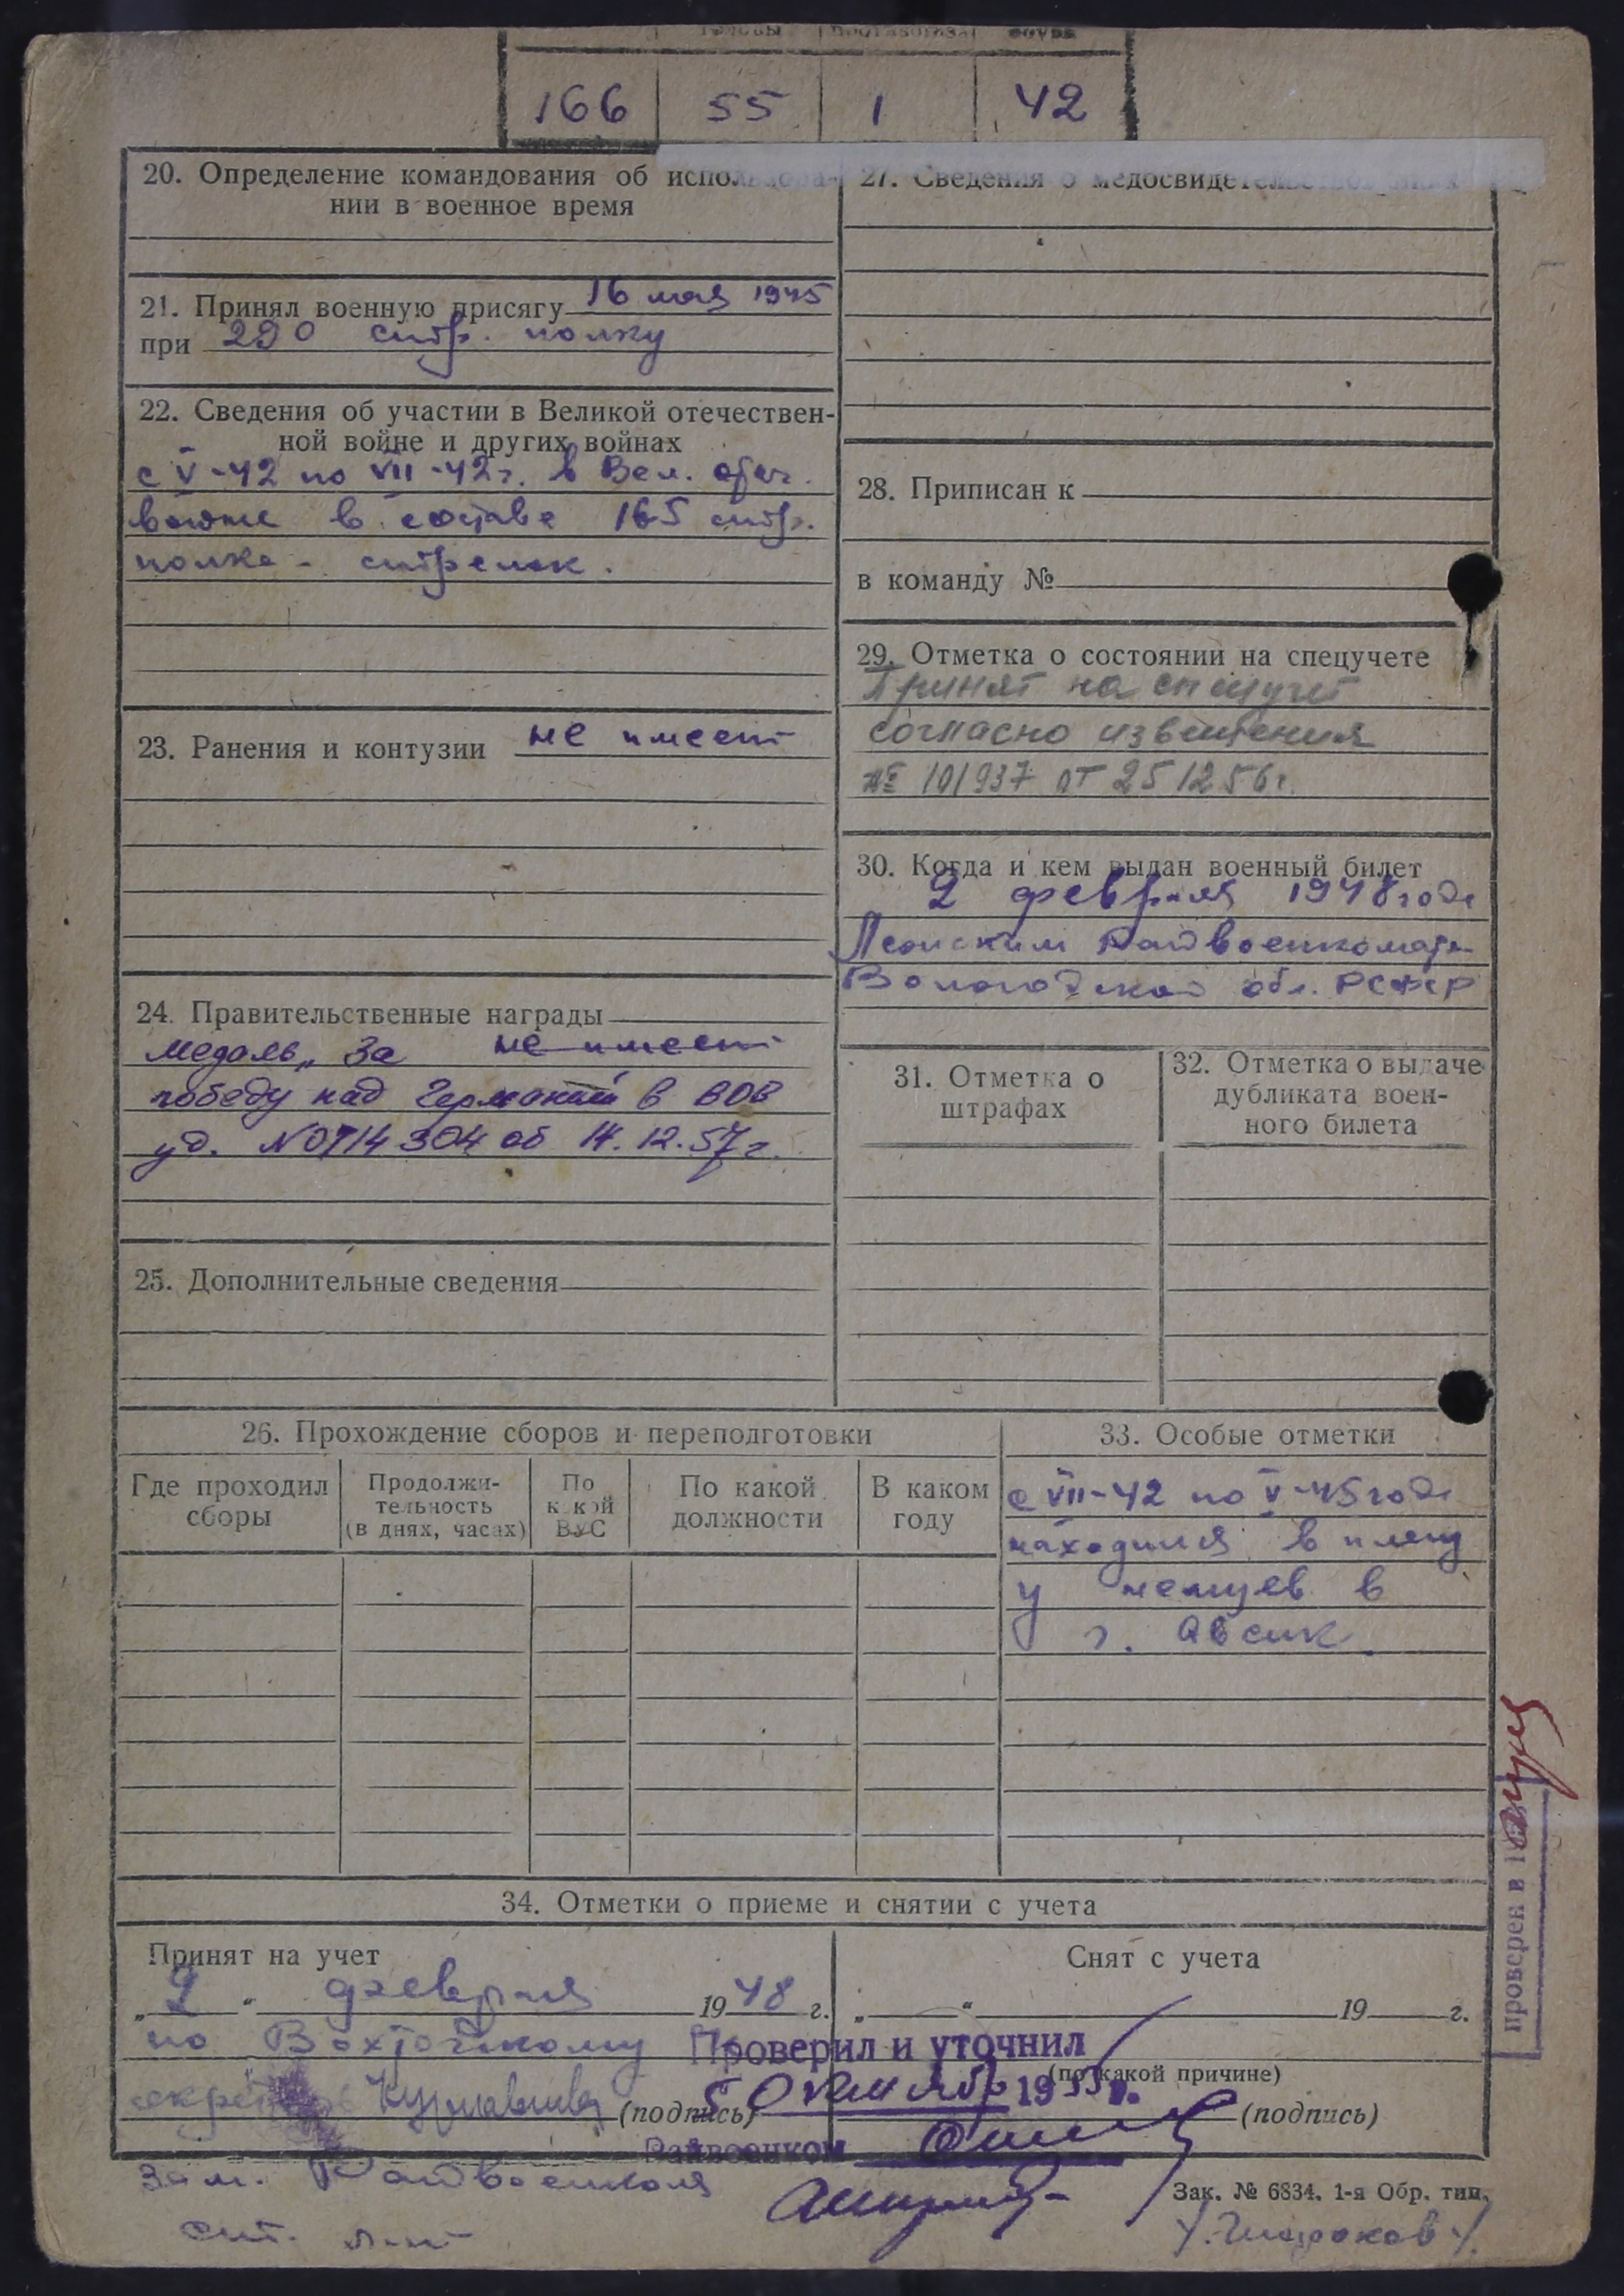 166 55 1 42
20. Определение командования об использова-
нии в военное время
21. Принял военную присягу 16 мая 1945
при 290 стр. полку
22. Сведения об участии в Великой отечествен-
ной войне и других войнах
с V-42 по VII-42 г. в Вел. отеч.
войне в составе 165 стр.
полка - стрелок.
23. Ранения и контузии не имеет
24. Правительственные награды
не имеет
медаль „За
победу над Германией в ВОВ
уд. № 0714304 от 14.12.57 г.
25. Дополнительные сведения
26. Прохождение сборов и переподготовки
Где проходил сборы
Продолжи-
тельность
(в днях, часах)
По
какой
ВУС
По какой
должности
В каком
году
27. Сведения о медосвидетельствованиях
28. Приписан к
в команду №
29. Отметка о состоянии на спецучете
Принят на спецучет
согласно извещения
№ 101937 от 25 12 56 г.
30. Когда и кем выдан военный билет
2 февраля 1948 года
Райвоенкомат
Вологодской обл. РСФСР
31. Отметка о
штрафах
32. Отметка о выдаче
дубликата воен-
ного билета
33. Особые отметки
с VII-42 по V-45 года
находился в плену
у немцев в
г. Авсик
34. Отметки о приеме и снятии с учета
Принят на учет
„2“ февраля 1948 г.
по Вохтожскому
(подпись)
Снят с учета
„ “ 19 г.
(по какой причине)
(подпись)
Проверил и уточнил
5 октября 1955 г.
Райвоенком
зам. Райвоенкома
ст. л-нт
/Широков/
Зак. № 6834. 1-я Обр. тип.
Проверен в 19